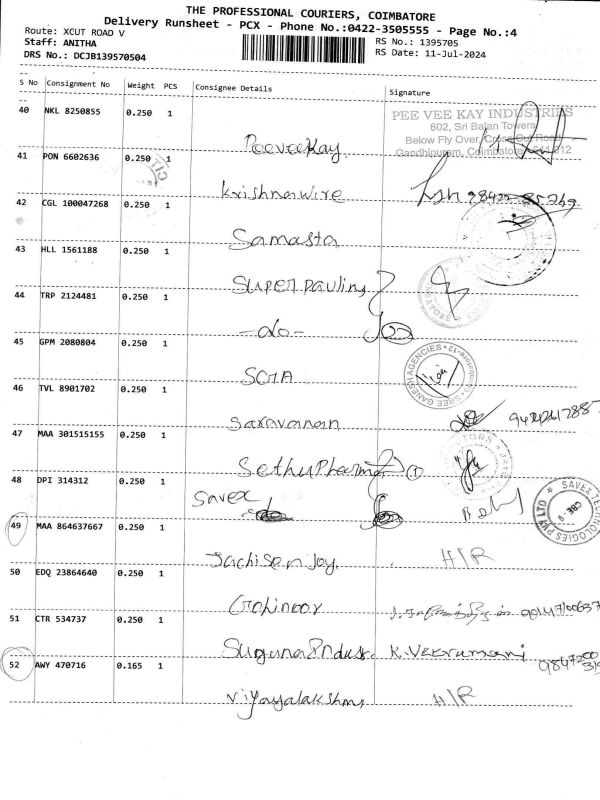 THE PROFESSIONAL COURIERS, COIMBATORE
Delivery Runsheet - PCX - Phone No.:0422-3505555 - Page No.:4
Route: XCUT ROAD V
Staff: ANITHA
DRS No.: DCJB139570504
RS No.: 1395705
RS Date: 11-Jul-2024
S No Consignment No Weight PCS Consignee Details Signature
40 NKL 8250855 0.250 1 PeeveeKay
PEE VEE KAY INDUSTRIES
602, Sri Balan Towers
Below Fly Over, Cross Cut Road
Gandhipuram, Coimbatore 641 012
41 PON 6602636 0.250 1 Krishnawire
42 CGL 100047268 0.250 1 Samasta
43 HLL 1561188 0.250 1 Super pauling
44 TRP 2124481 0.250 1 -do-
45 GPM 2080804 0.250 1 SGA
SREE GANESH AGENCIES
46 TVL 8901702 0.250 1 Saravanan
47 MAA 301515155 0.250 1 Sethupharma
48 DPI 314312 0.250 1 Savex
SAVEX TECHNOLOGIES PVT LTD
CBE - 9
49 MAA 864637667 0.250 1 Jachisenjoy H/R
50 EDQ 23864640 0.250 1
51 CTR 534737 0.250 1 Suguna Indust. K. Veeramani
52 AWY 470716 0.165 1 Vijayalakshmi H/R